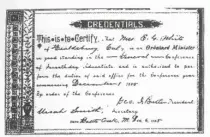 CREDENTIALS
This is to Certify, That Mrs E. G. White
of Healdsburg, Cal., is an Ordained Minister
in good standing in the General Conference
of Seventh-day Adventists and is authorized to per-
form the duties of said office for the Conference year
December 1885
By order of the Conference
Geo. I. Butler President
Uriah Smith, Secretary
Battle Creek, M, Dec 6 1885